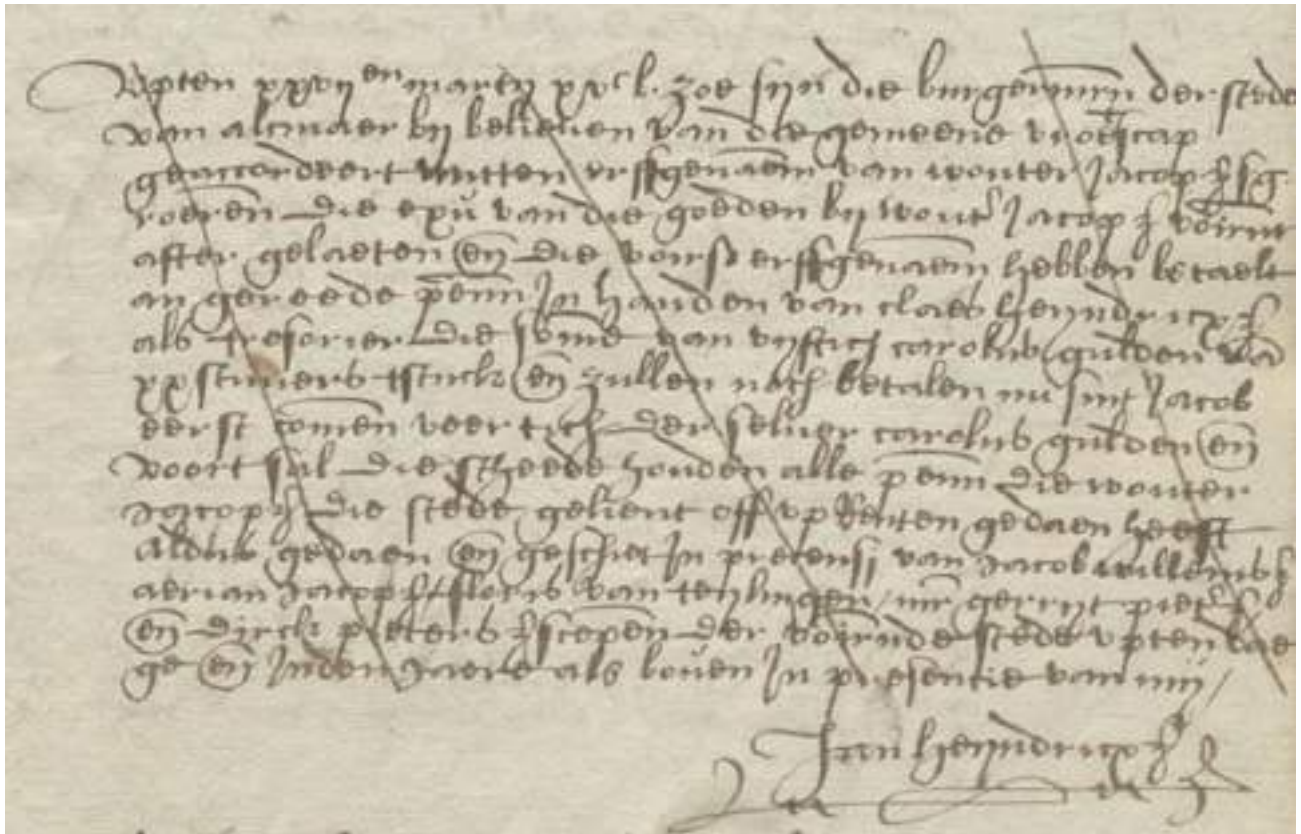 Upten xxvij en marty xvc l. zoe sijn die burgermrn der stede
van alcmaer bij belieuen van die gemeene vroetscap
geaccordeert mitten erffgenaem van wouter Jacop z
roeren die exu van die goeden bij wout Jacop z voirnt
after gelaeten en die voirs erffgenaem hebben betaelt
an gereede penn In handen van claes heyndricx z
als tresorier die some van vijftich carolus gulden va
xx stuuers tstuck en zullen noch betalen nu sint Jacob
eerst comen veertich der seluer carolus gulden en
voert sal die stheede houden alle penn die wouter
Jacop z die stede gelient off up renten gedaen heeft
Aldus gedaen en geschiet In presensi van Jacob willems z
aerian Jacop z floris van teylingen mr gerryt piet z
en dirck pieters z scepen der voirnde stede upten dae
ge en Inden Jaere als bouen In presentie van mij
Jan heyndricx z